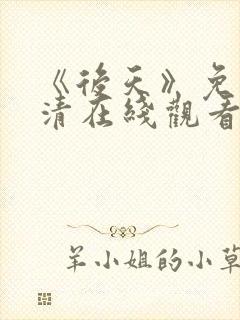 《後天》免
清在綫觀看
羊小姐的小草